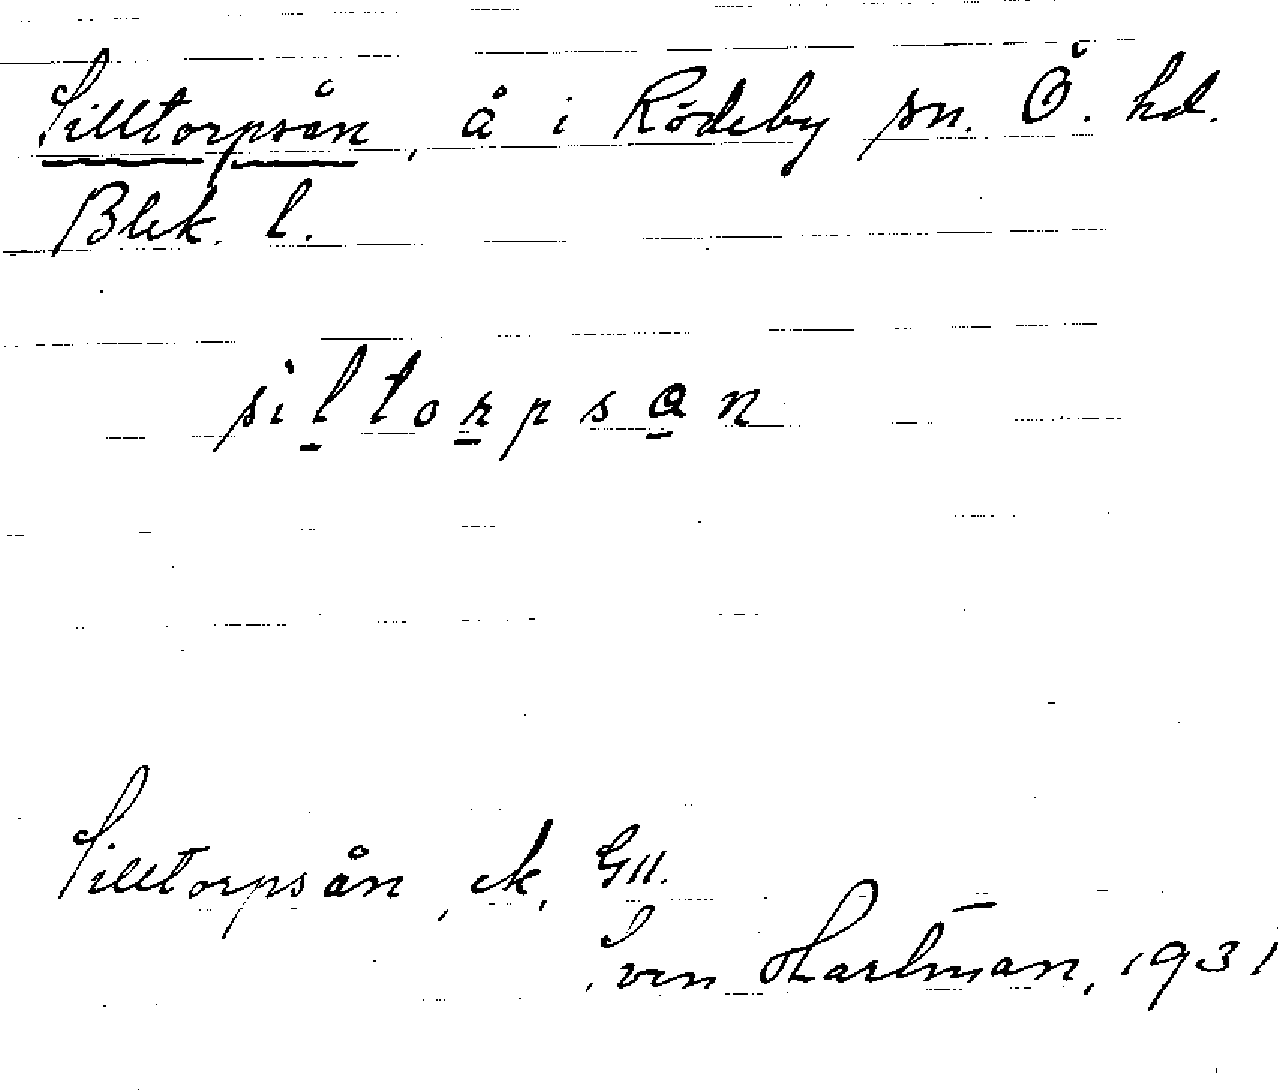 Silltorpsån, å i Rödeby sn. Ö. hd.
Blek. l.
siltorpsan
Silltorpsån, ek, G11.
Sven Hartman, 1931